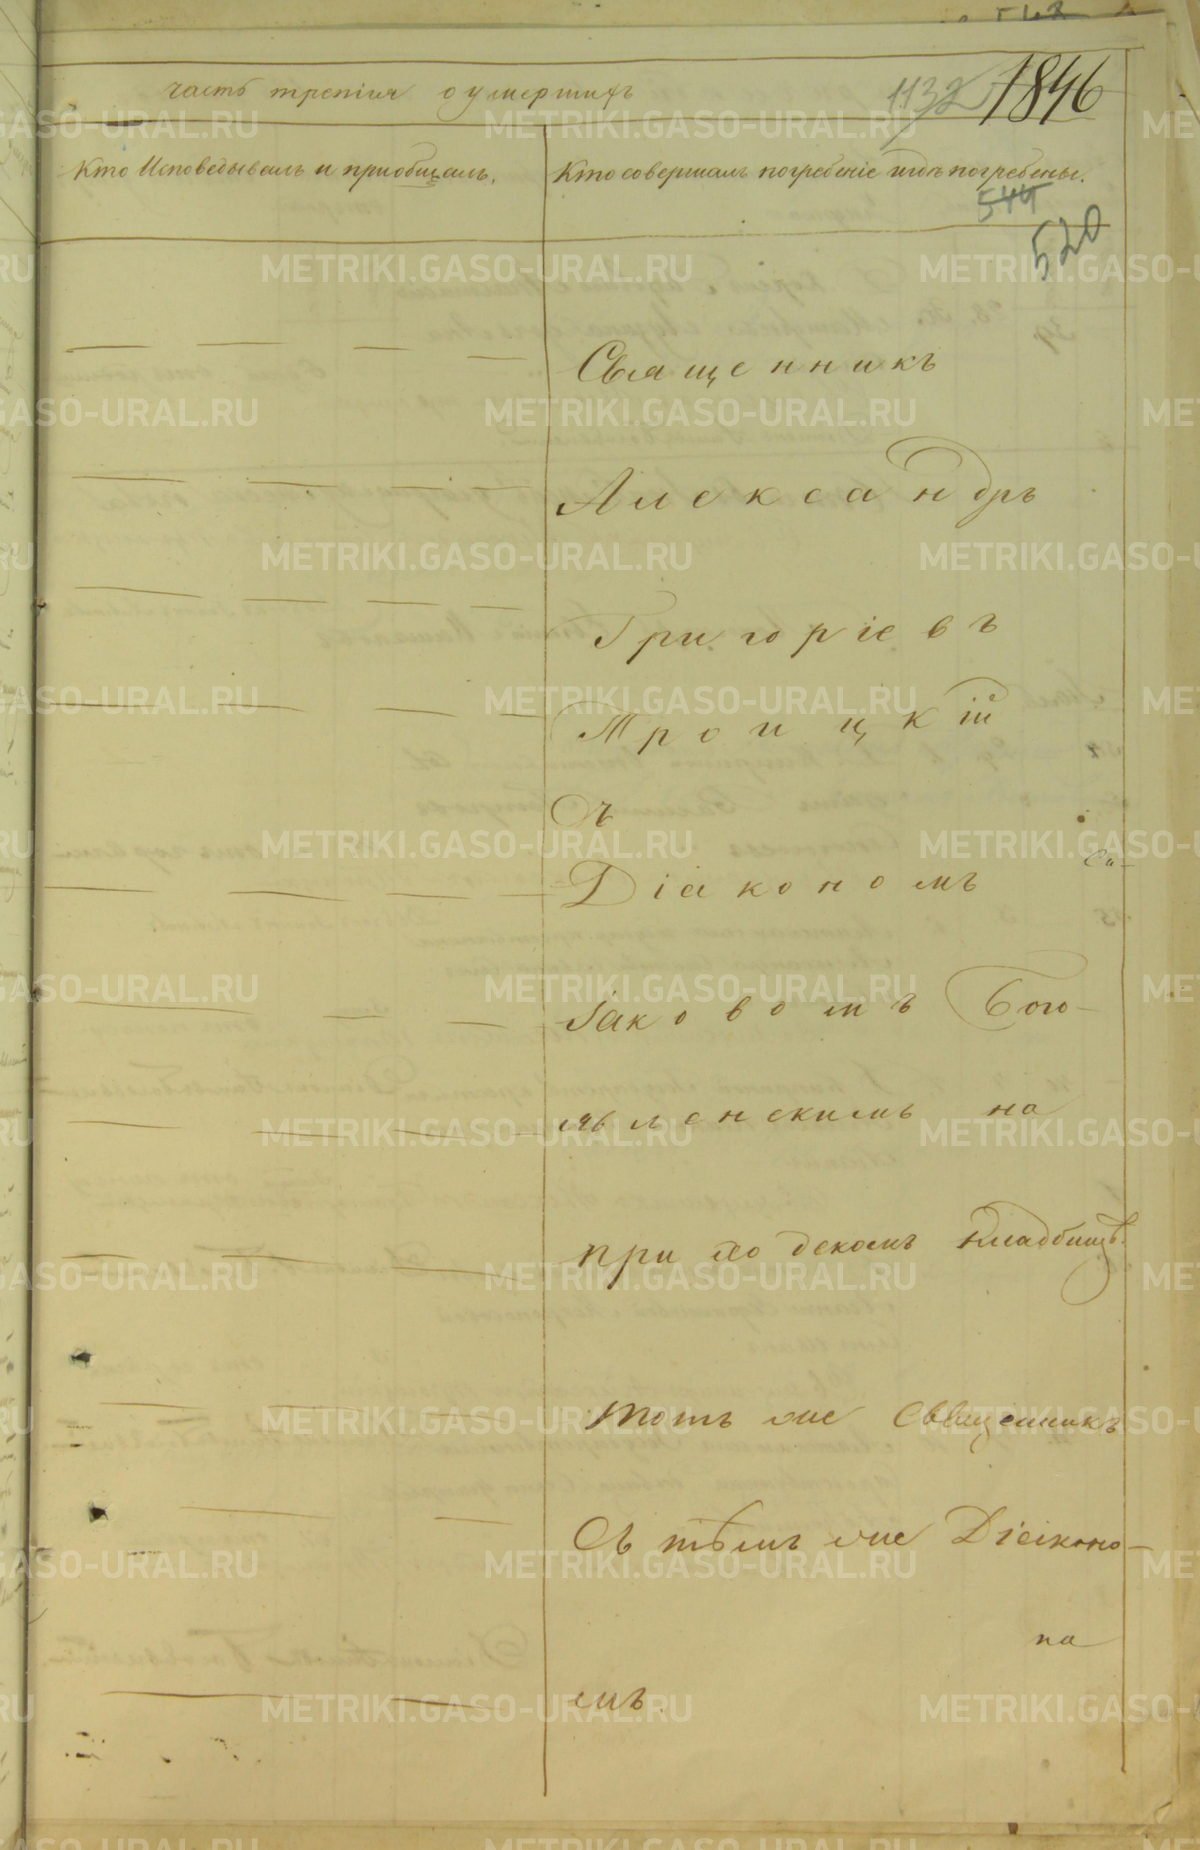 часть третія о умершихъ 1132 1846
Кто Исповедывалъ и приобщалъ.
Кто совершалъ погребеніе и гдѣ погребены.
544
520
Священникъ
Александръ
Григоріевъ
Троицкій
съ
Діакономъ
Іаковомъ Бого-
явленскимъ на
приходскомъ кладбищѣ.
тотъ же Священникъ
Съ тѣмъ же Діаконо-
на
мъ.
METRIKI.GASO-URAL.RU